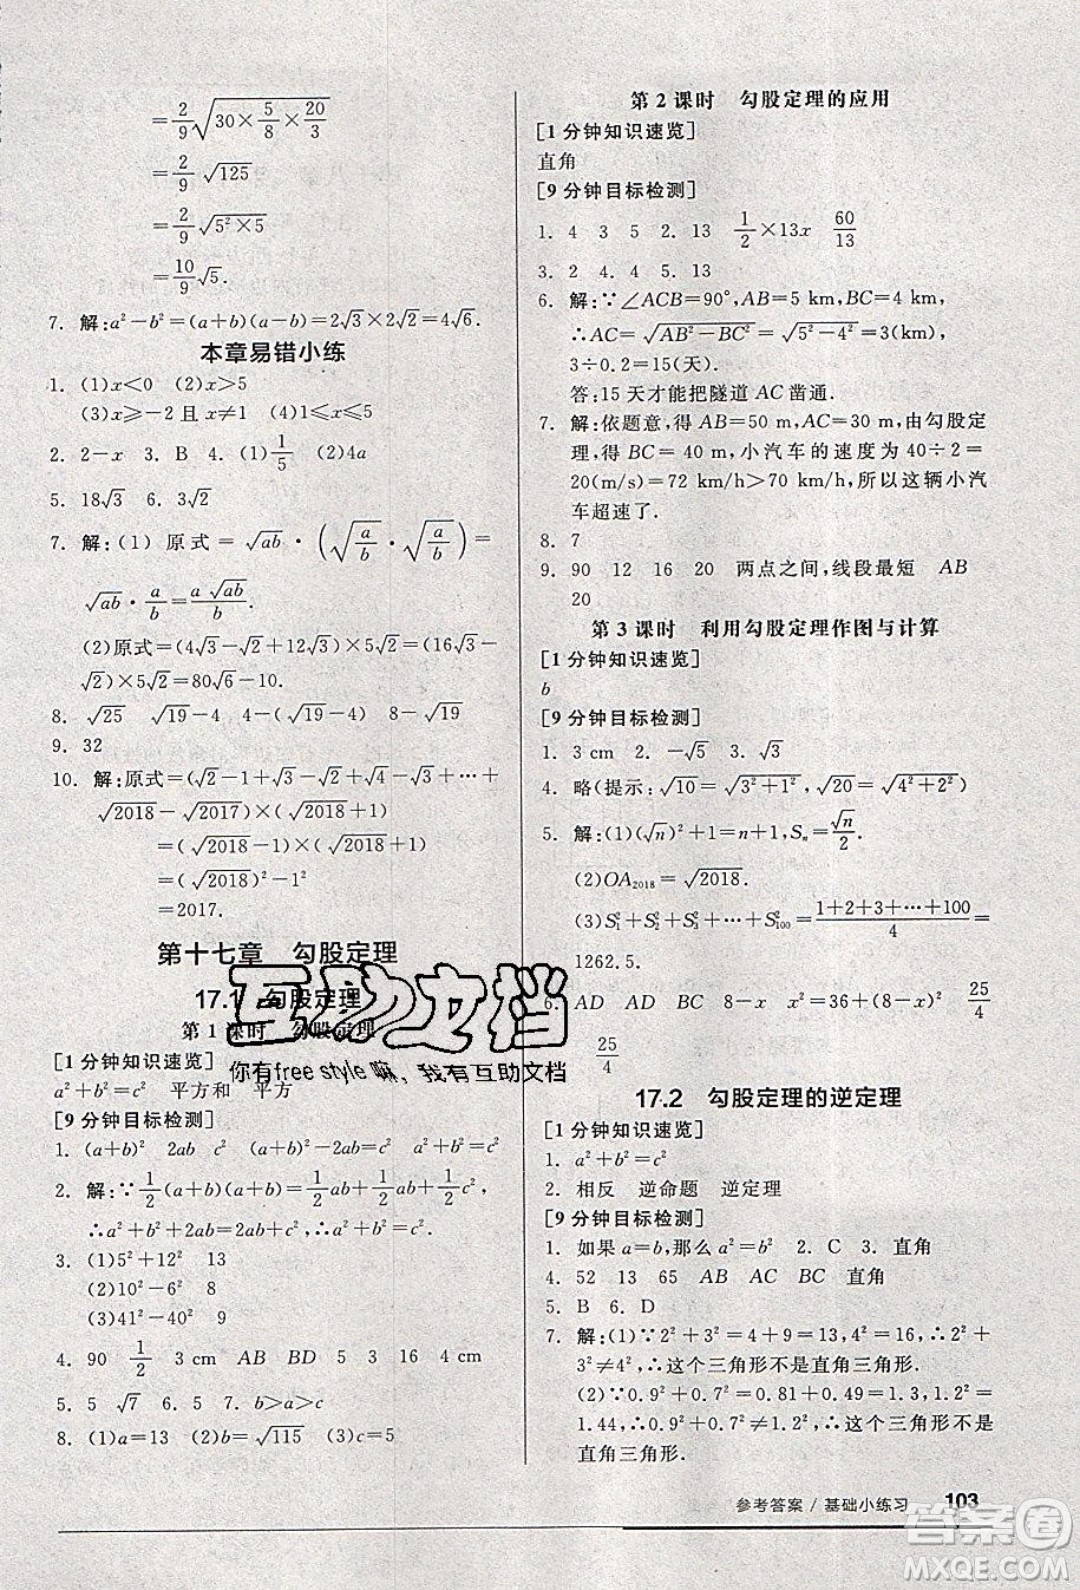 =2/9√(30×5/8×20/3)
=2/9 √125
=2/9 √(5²×5)
=10/9 √5.
7. 解:a²-b²=(a+b)(a-b)=2√3×2√2=4√6.
本章易错小练
1. (1)x<0 (2)x>5
(3)x≥-2 且 x≠1 (4)1≤x≤5
2. 2-x 3. B 4. (1)1/5 (2)4a
5. 18√3 6. 3√2
7. 解:(1) 原式 = √ab · (√(a/b) · √(a/b)) =
√ab · a/b = a√ab/b.
(2)原式=(4√3-√2+12√3)×5√2=(16√3-
√2)×5√2=80√6-10.
8. √25 √19-4 4-(√19-4) 8-√19
9. 32
10. 解:原式=(√2-1+√3-√2+√4-√3+···+
√2018-√2017)×(√2018+1)
=(√2018-1)×(√2018+1)
=(√2018)²-1²
=2017.
第十七章 勾股定理
17.1 勾股定理
第 1 课时 勾股定理
[1 分钟知识速览]
a²+b²=c² 平方和 平方
[9 分钟目标检测]
1. (a+b)² 2ab c² (a+b)²-2ab=c² a²+b²=c²
2. 解:∵1/2(a+b)(a+b)=1/2ab+1/2ab+1/2c²,
∴a²+b²+2ab=2ab+c²,∴a²+b²=c².
3. (1)5²+12² 13
(2)10²-6² 8
(3)41²-40² 9
4. 90 1/2 3 cm AB BD 5 3 16 4 cm
5. 5 √7 6. 25 7. b>a>c
8. (1)a=13 (2)b=√115 (3)c=5
第 2 课时 勾股定理的应用
[1 分钟知识速览]
直角
[9 分钟目标检测]
1. 4 3 5 2. 13 1/2×13x 60/13
3. 2 4. 4 5. 13
6. 解:∵∠ACB=90°,AB=5 km,BC=4 km,
∴AC=√(AB²-BC²)=√(5²-4²)=3(km),
3÷0.2=15(天).
答:15 天才能把隧道 AC 凿通.
7. 解:依题意,得 AB=50 m,AC=30 m,由勾股定
理,得 BC= 40 m,小汽车的速度为 40÷2=
20(m/s)=72 km/h>70 km/h,所以这辆小汽
车超速了.
8. 7
9. 90 12 16 20 两点之间,线段最短 AB
20
第 3 课时 利用勾股定理作图与计算
[1 分钟知识速览]
b
[9 分钟目标检测]
1. 3 cm 2. -√5 3. √3
4. 略(提示:√10=√(3²+1²),√20=√(4²+2²))
5. 解:(1)(√n)²+1=n+1,Sₙ=√n/2.
(2)OA₂₀₁₈=√2018.
(3)S₁²+S₂²+S₃²+···+S₁₀₀²=(1+2+3+···+100)/4=
1262.5.
6. AD AD BC 8-x x²=36+(8-x)² 25/4
25/4
17.2 勾股定理的逆定理
[1 分钟知识速览]
1. a²+b²=c²
2. 相反 逆命题 逆定理
[9 分钟目标检测]
1. 如果 a=b,那么 a²=b² 2. C 3. 直角
4. 52 13 65 AB AC BC 直角
5. B 6. D
7. 解:(1)∵2²+3²=4+9=13,4²=16,∴2²+
3²≠4²,∴这个三角形不是直角三角形.
(2)∵0.9²+0.7²=0.81+0.49=1.3,1.2²=
1.44,∴0.9²+0.7²≠1.2²,∴这个三角形不是
直角三角形.
参考答案 / 基础小练习 103
互动文档
你有free style 嘛，我有互助文档
答案圈
MXQE.COM